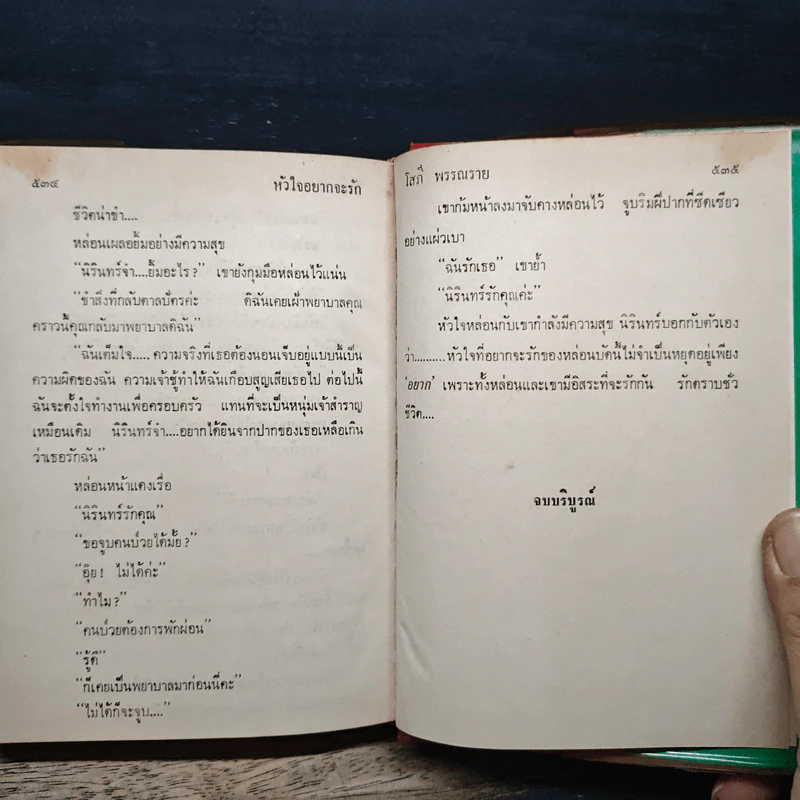 ๕๓๔ หัวใจอยากจะรัก
ชีวิตน่าขำ....
หล่อนเผลอยิ้มอย่างมีความสุข
“นิรินทร์จ๋า....ยิ้มอะไร?” เขายังกุมมือหล่อนไว้แน่น
“ขำสิ่งที่กลับตาลปัตรค่ะ ดิฉันเคยเฝ้าพยาบาลคุณ
คราวนี้คุณกลับมาพยาบาลดิฉัน”
“ฉันเต็มใจ..... ความจริงที่เธอต้องนอนเจ็บอยู่แบบนี้เป็น
ความผิดของฉัน ความเจ้าชู้ทำให้ฉันเกือบสูญเสียเธอไป ต่อไปนี้
ฉันจะตั้งใจทำงานเพื่อครอบครัว แทนที่จะเป็นหนุ่มเจ้าสำราญ
เหมือนเดิม นิรินทร์จ๋า....อยากได้ยินจากปากของเธอเหลือเกิน
ว่าเธอรักฉัน”
หล่อนหน้าแดงเรื่อ
“นิรินทร์รักคุณ”
“ขอจูบคนป่วยได้มั้ย?”
“อุ๊ย! ไม่ได้ค่ะ”
“ทำไม?”
“คนป่วยต้องการพักผ่อน”
“รู้ดี”
“ก็เคยเป็นพยาบาลมาก่อนนี่คะ”
“ไม่ได้ก็จะจูบ....”
โสภี พรรณราย ๕๓๕
เขาก้มหน้าลงมาจับคางหล่อนไว้ จูบริมฝีปากที่ซีดเซียว
อย่างแผ่วเบา
“ฉันรักเธอ” เขาย้ำ
“นิรินทร์รักคุณค่ะ”
หัวใจหล่อนกับเขากำลังมีความสุข นิรินทร์บอกกับตัวเอง
ว่า..........หัวใจที่อยากจะรักของหล่อนบัดนี้ไม่จำเป็นหยุดอยู่เพียง
‘อยาก’ เพราะทั้งหล่อนและเขามีอิสระที่จะรักกัน รักตราบชั่ว
ชีวิต....
จบบริบูรณ์